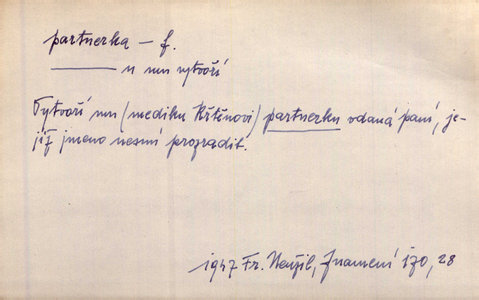 partnerka – f.
——— u mu vytvoří
Vytvoří mu (mediku Křtěnovi) partnerku vdaná paní, je-
jíž jméno nesmí prozradit.
1947 Fr. Neužil, Znamení 170, 28